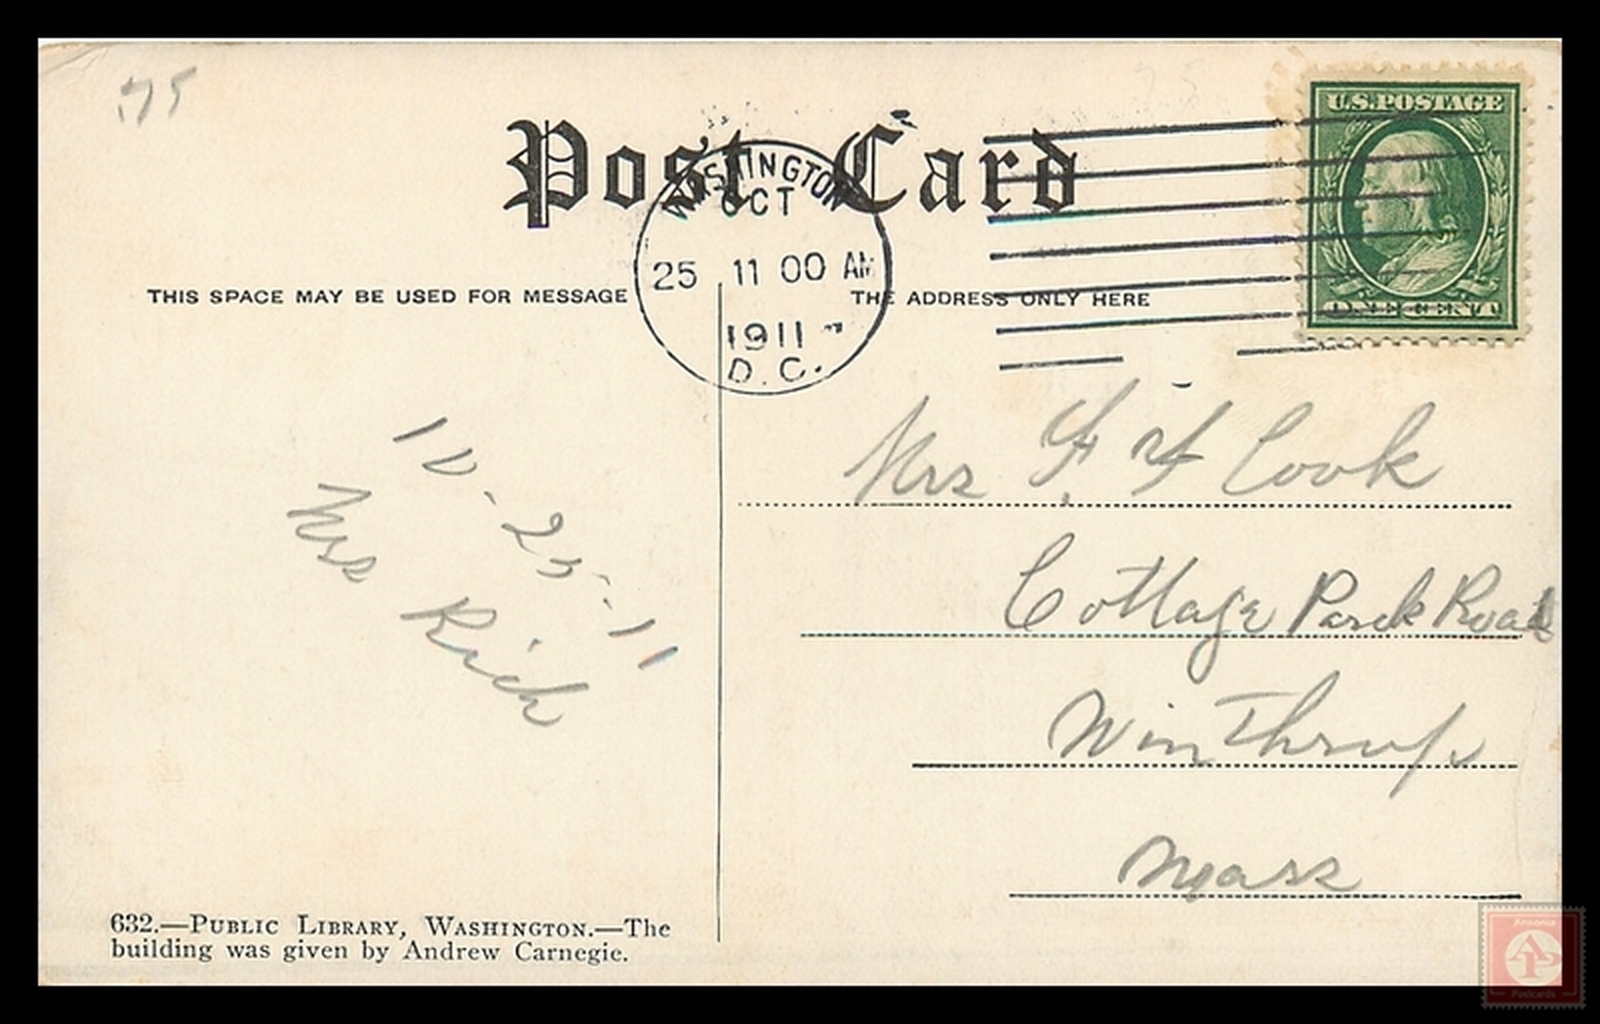 .75
Post Card
U.S. POSTAGE
ONE CENT
WASHINGTON
OCT
25 11 00 AM
1911
D. C.
THIS SPACE MAY BE USED FOR MESSAGE
THE ADDRESS ONLY HERE
10-25-11
Mrs Cook
Cottage Park Road
Winthrop
Mass
632.—PUBLIC LIBRARY, WASHINGTON.—The
building was given by Andrew Carnegie.
AP
Postcards